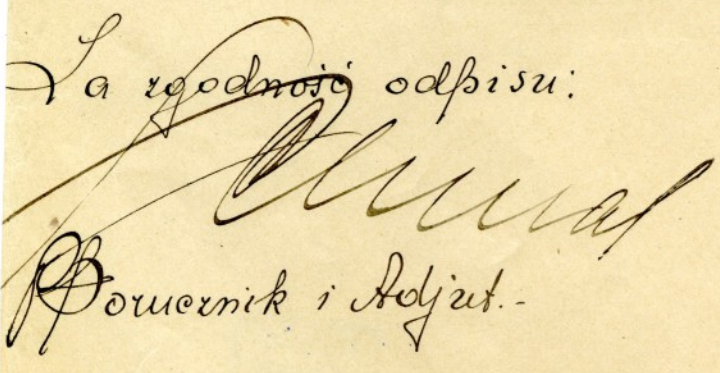 Za zgodność odpisu:
Porucznik i Adjut.-